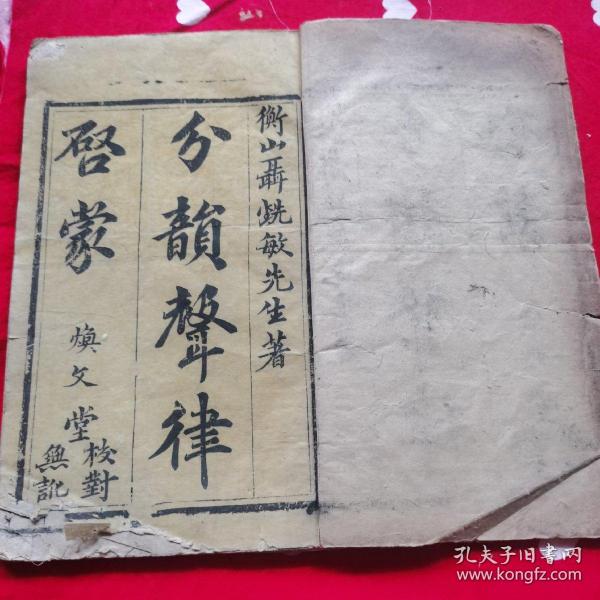 衡山聶銑敏先生著
分韻聲律
啓蒙
煥文堂
校對
無訛
孔夫子旧书网
www.kongfz.com